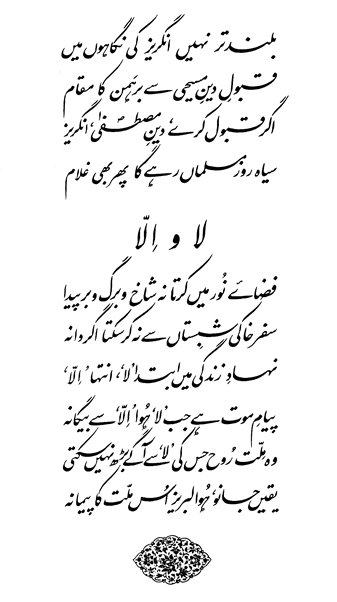 بلند تر نہیں انگریز کی نگاہوں میں
قبولِ دینِ مسیحی سے برہمن کا مقام
اگر قبول کرے، دینِ مصطفیٰؐ، انگریز
سیاہ روز مسلماں رہے گا پھر بھی غلام
لا و اِلّا
فضائے نُور میں کرتا نہ شاخ و برگ و بر پیدا
سفر خاکی شبستاں سے نہ کر سکتا اگر دانہ
نہادِ زندگی میں ابتدا 'لا'، انتہا 'اِلّا'
پیامِ موت ہے جب 'لا' ہُوا 'اِلّا' سے بیگانہ
وہ مِلّت رُوح جس کی 'لا' سے آگے بڑھ نہیں سکتی
یقیں جانو، ہُوا لبریز اُس مِلّت کا پیمانہ